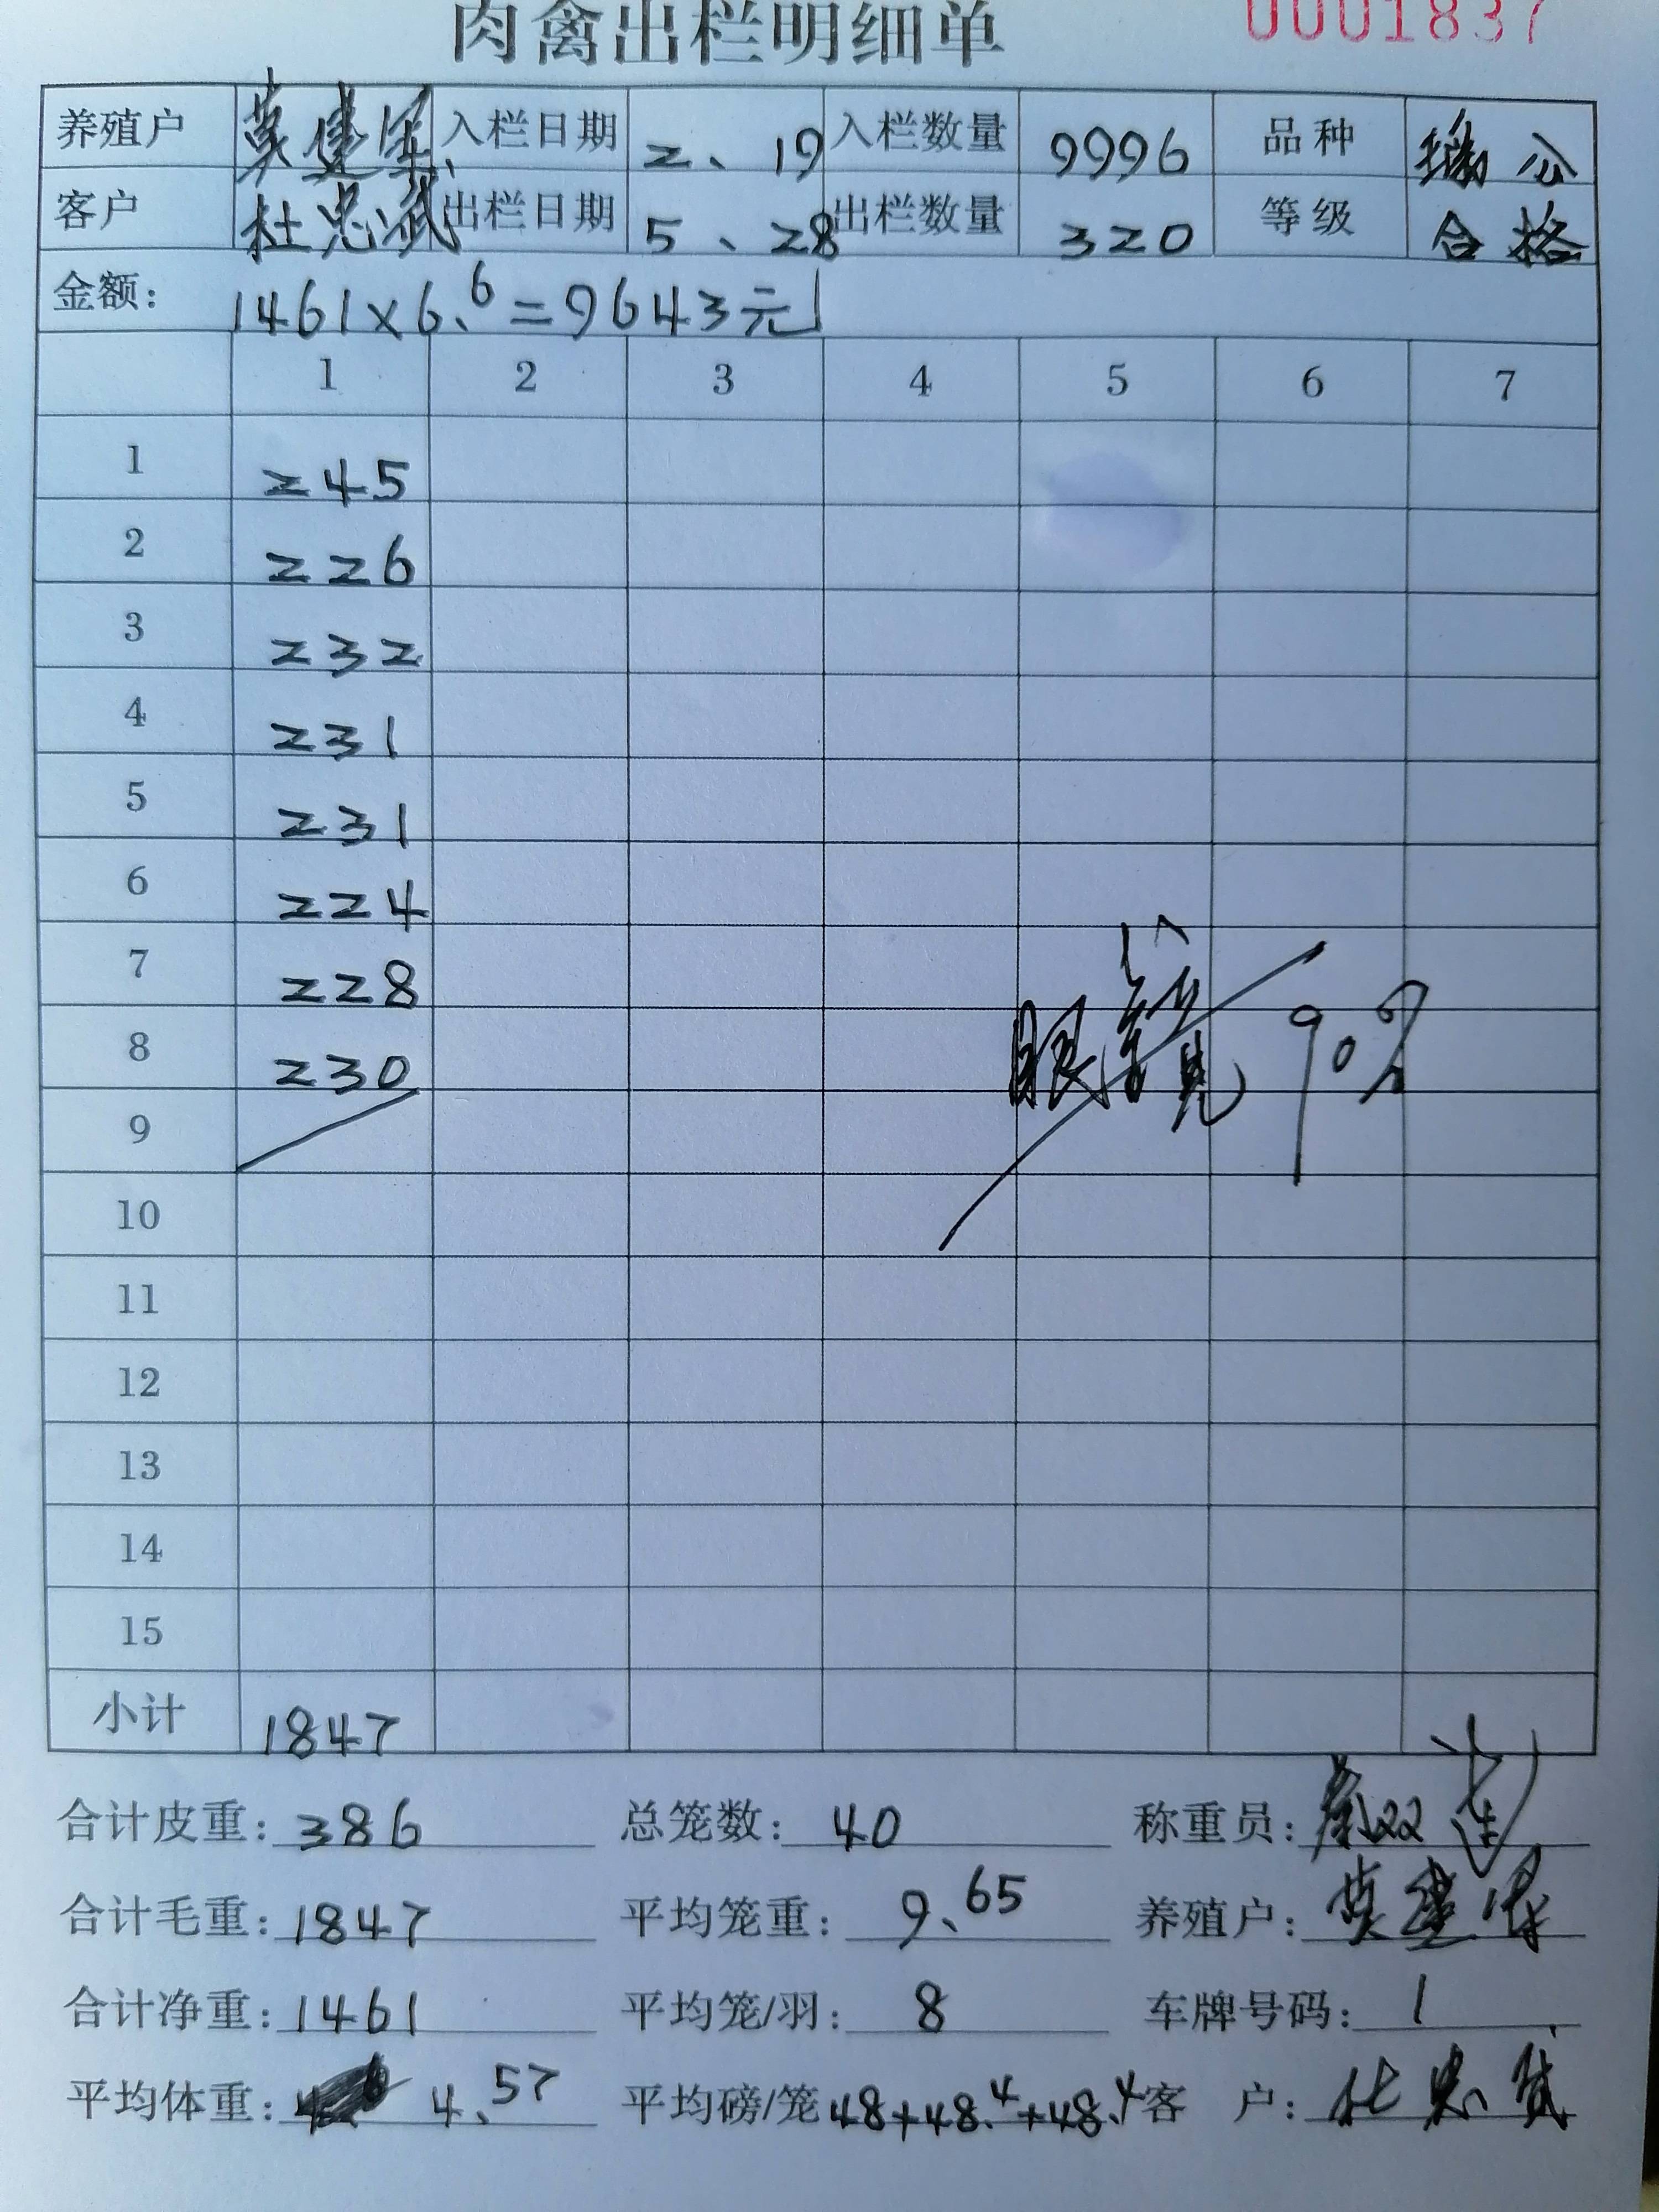 肉禽出栏明细单 0001837
养殖户 莫建军 入栏日期 2、19 入栏数量 9996 品种 瑞公
客户 杜忠武 出栏日期 5、28 出栏数量 320 等级 合格
金额: 1461×6.6=9643元
1 2 3 4 5 6 7
1 245
2 226
3 232
4 231
5 231
6 224
7 228
8 230 眼镜 90%
9
10
11
12
13
14
15
小计 1847
合计皮重: 386 总笼数: 40 称重员:
合计毛重: 1847 平均笼重: 9.65 养殖户: 莫建军
合计净重: 1461 平均笼/羽: 8 车牌号码: 1
平均体重: 4.57 平均磅/笼 48+48.4+48.4 客 户: 杜忠武